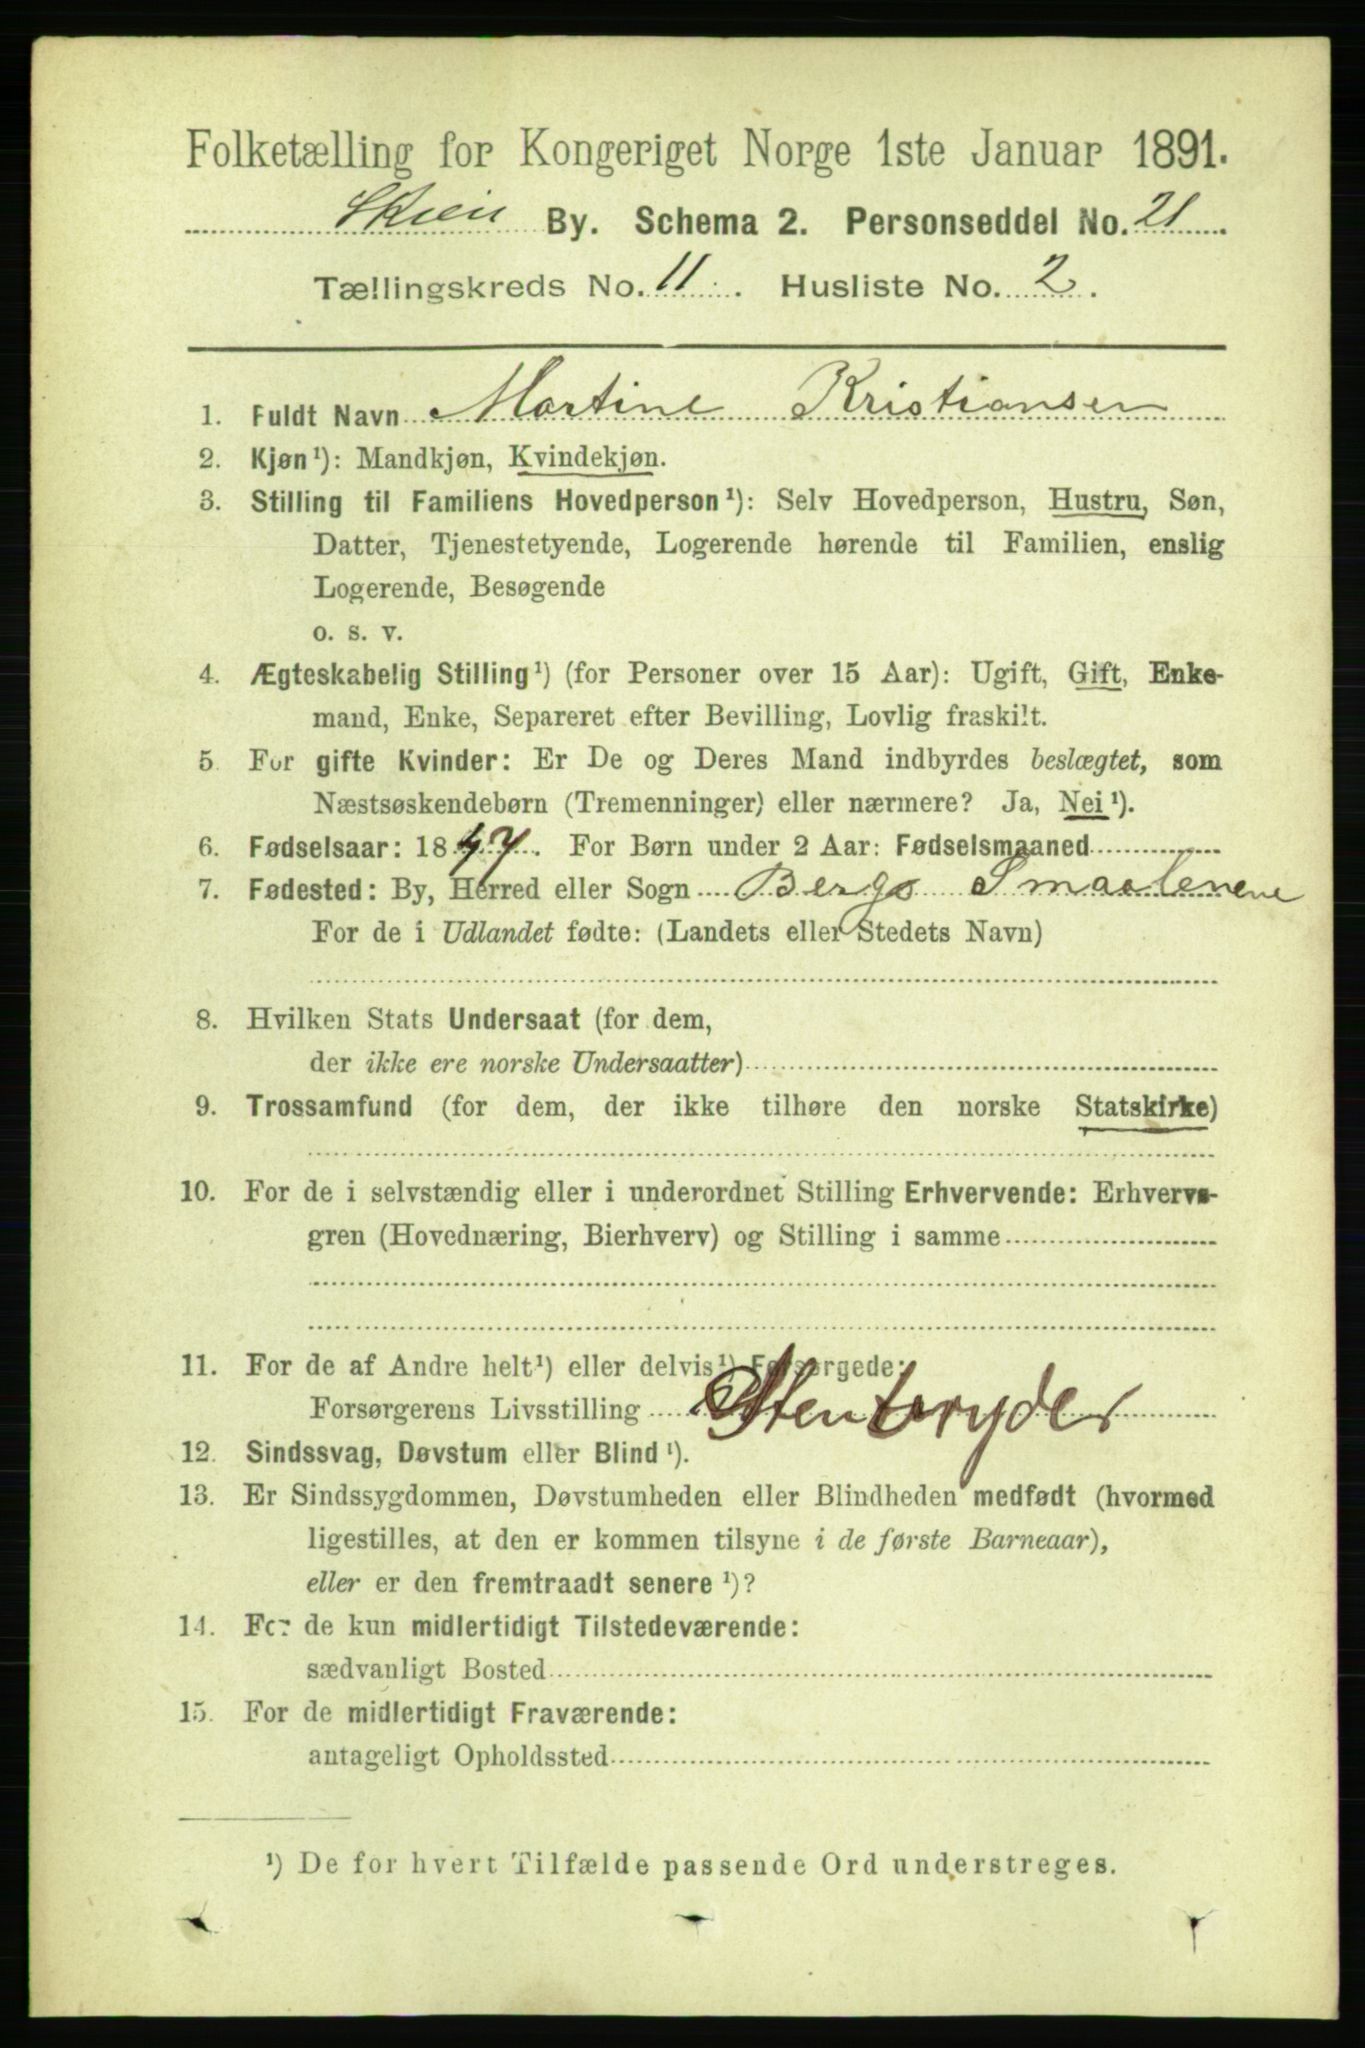 Folketælling for Kongeriget Norge 1ste Januar 1891.
Skien By. Schema 2. Personseddel No. 21.
Tællingskreds No. 11. Husliste No. 2.
1. Fuldt Navn Martine Kristiansen
2. Kjøn¹): Mandkjøn, Kvindekjøn.
3. Stilling til Familiens Hovedperson¹): Selv Hovedperson, Hustru, Søn,
Datter, Tjenestetyende, Logerende hørende til Familien, enslig
Logerende, Besøgende
o. s. v.
4. Ægteskabelig Stilling¹) (for Personer over 15 Aar): Ugift, Gift, Enke-
mand, Enke, Separeret efter Bevilling, Lovlig fraskilt.
5. For gifte Kvinder: Er De og Deres Mand indbyrdes beslægtet, som
Næstsøskendebørn (Tremenninger) eller nærmere? Ja, Nei¹).
6. Fødselsaar: 1847. For Børn under 2 Aar: Fødselsmaaned
7. Fødested: By, Herred eller Sogn Bergs Smaalenene
For de i Udlandet fødte: (Landets eller Stedets Navn)
8. Hvilken Stats Undersaat (for dem,
der ikke ere norske Undersaatter)
9. Trossamfund (for dem, der ikke tilhøre den norske Statskirke)
10. For de i selvstændig eller i underordnet Stilling Erhvervende: Erhvervs-
gren (Hovednæring, Bierhverv) og Stilling i samme
11. For de af Andre helt¹) eller delvis¹) Forsørgede:
Forsørgerens Livsstilling Stenbryder
12. Sindssvag, Døvstum eller Blind¹).
13. Er Sindssygdommen, Døvstumheden eller Blindheden medfødt (hvormed
ligestilles, at den er kommen tilsyne i de første Barneaar),
eller er den fremtraadt senere¹)?
14. For de kun midlertidigt Tilstedeværende:
sædvanligt Bosted
15. For de midlertidigt Fraværende:
antageligt Opholdssted
¹) De for hvert Tilfælde passende Ord understreges.